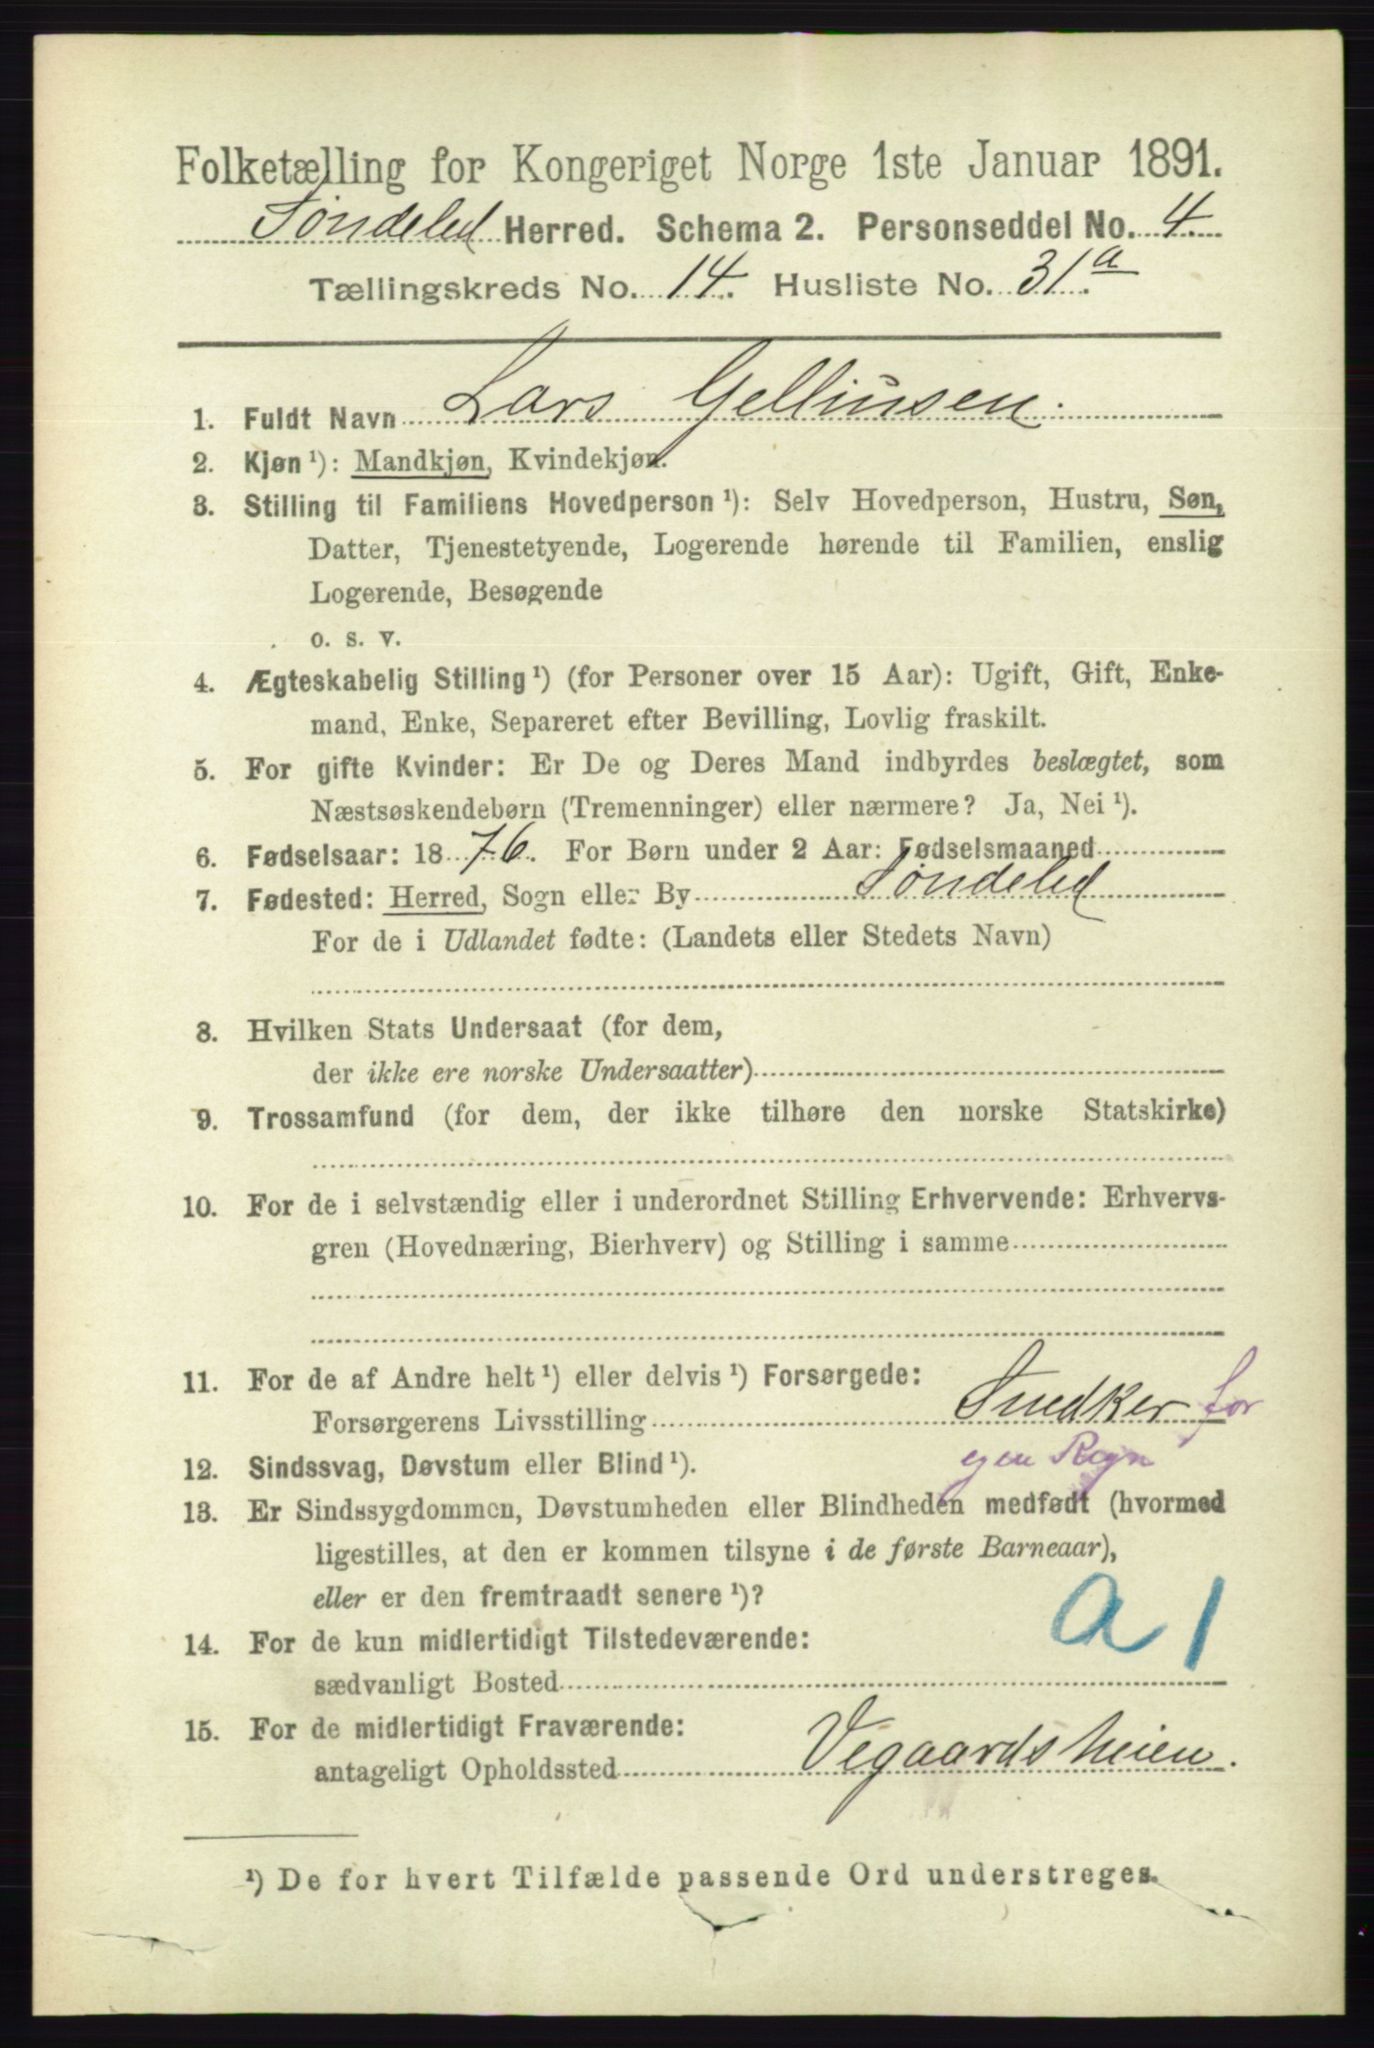 Folketælling for Kongeriget Norge 1ste Januar 1891.
Søndeled Herred. Schema 2. Personseddel No. 4.
Tællingskreds No. 14. Husliste No. 31.a
1. Fuldt Navn Lars Gelliusen.
2. Kjøn¹): Mandkjøn, Kvindekjøn.
3. Stilling til Familiens Hovedperson¹): Selv Hovedperson, Hustru, Søn,
Datter, Tjenestetyende, Logerende hørende til Familien, enslig
Logerende, Besøgende
o. s. v.
4. Ægteskabelig Stilling¹) (for Personer over 15 Aar): Ugift, Gift, Enke-
mand, Enke, Separeret efter Bevilling, Lovlig fraskilt.
5. For gifte Kvinder: Er De og Deres Mand indbyrdes beslægtet, som
Næstsøskendebørn (Tremenninger) eller nærmere? Ja, Nei¹).
6. Fødselsaar: 1876. For Børn under 2 Aar: Fødselsmaaned
7. Fødested: Herred, Sogn eller By Søndeled
For de i Udlandet fødte: (Landets eller Stedets Navn)
8. Hvilken Stats Undersaat (for dem,
der ikke ere norske Undersaatter)
9. Trossamfund (for dem, der ikke tilhøre den norske Statskirke)
10. For de i selvstændig eller i underordnet Stilling Erhvervende: Erhvervs-
gren (Hovednæring, Bierhverv) og Stilling i samme
11. For de af Andre helt¹) eller delvis¹) Forsørgede:
Forsørgerens Livsstilling Snedker for
egen Regn
12. Sindssvag, Døvstum eller Blind¹).
13. Er Sindssygdommen, Døvstumheden eller Blindheden medfødt (hvormed
ligestilles, at den er kommen tilsyne i de første Barneaar),
eller er den fremtraadt senere¹)?
a 1
14. For de kun midlertidigt Tilstedeværende:
sædvanligt Bosted
15. For de midlertidigt Fraværende:
antageligt Opholdssted Vegaardsheien.
¹) De for hvert Tilfælde passende Ord understreges.